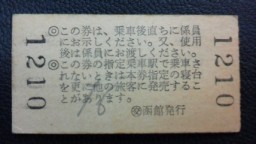 ◎この券は、乗車後直ちに係員
にお示しください。又、使用
後は係員にお渡しください。
◎この券の指定乗車駅で乗車さ
れないときは本券指定の寝台
を更に他の旅客に発売するこ
とがあります。
函館発行
1210
1210